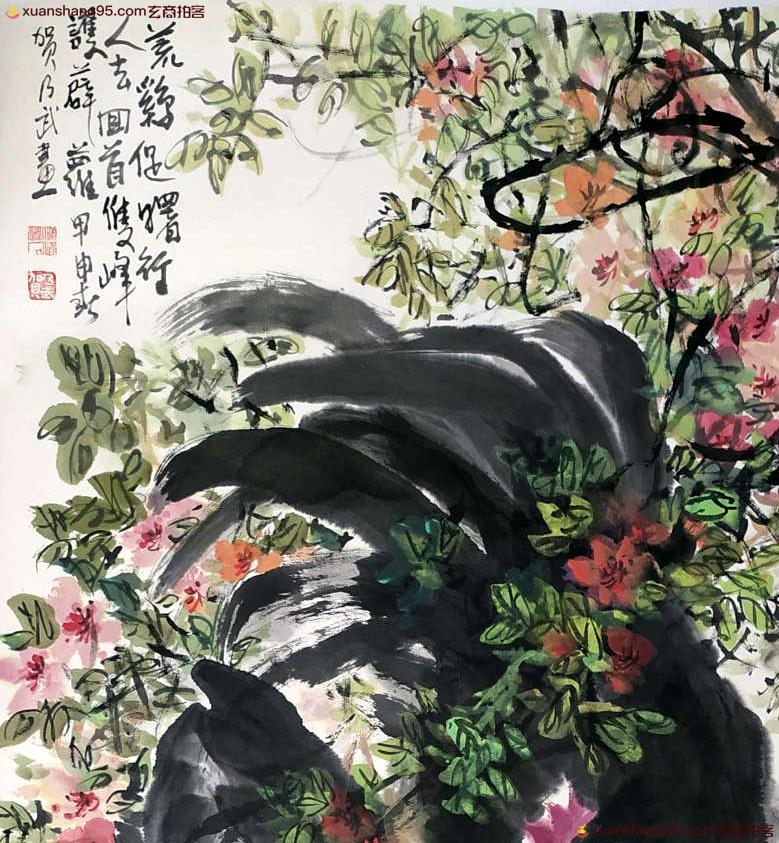 xuanshang95.com玄商拍客
荒鷄促曙行
人去回首雙峰
護薜蘿 甲申秋
賀乃武畫
xuanshang95.com玄商拍客